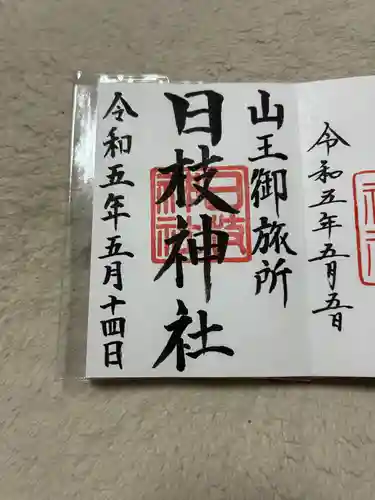 令和五年五月五日
山王御旅所
日枝神社
日枝神社
令和五年五月十四日